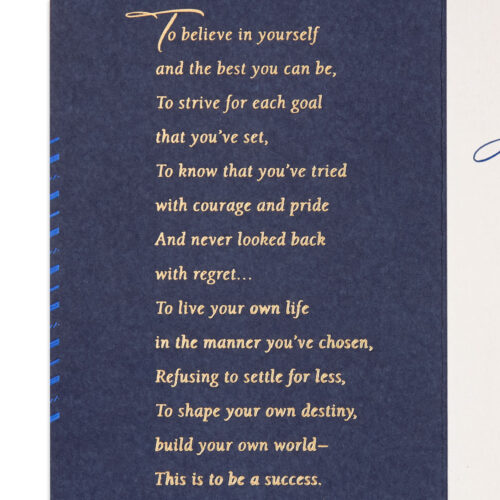 To believe in yourself
and the best you can be,
To strive for each goal
that you've set,
To know that you've tried
with courage and pride
And never looked back
with regret...
To live your own life
in the manner you've chosen,
Refusing to settle for less,
To shape your own destiny,
build your own world—
This is to be a success.